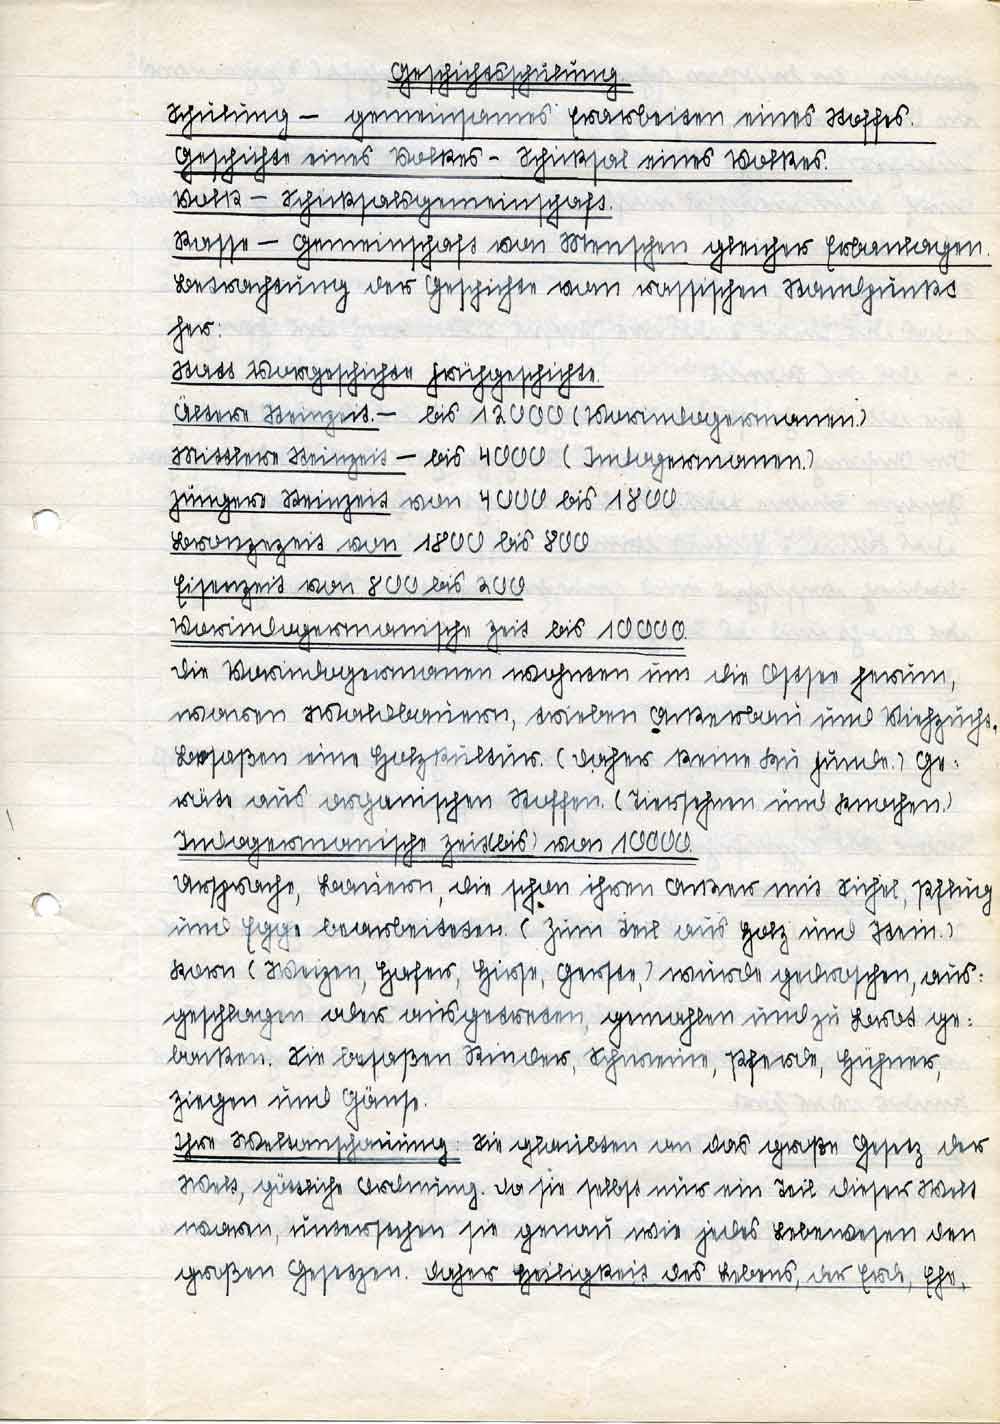 Geschichtsschulung
Schulung – gemeinsames Erarbeiten eines Stoffes.
Geschichte eines Volkes – Schicksal eines Volkes.
Volk – Schicksalsgemeinschaft.
Rasse – Gemeinschaft von Menschen gleicher Erbanlagen.
Betrachtung der Geschichte vom rassischen Standpunkt
her:
Statt Vorgeschichte Frühgeschichte.
Ältere Steinzeit. – bis 12000 (Vorindogermanen.)
Mittlere Steinzeit – bis 4000 (Indogermanen.)
Jüngere Steinzeit von 4000 bis 1800
Bronzezeit von 1800 bis 800
Eisenzeit von 800 bis 200
Vorindogermanische Zeit bis 10000.
Die Vorindogermanen wohnten um die Ostsee herum,
waren Waldbauern, trieben Ackerbau und Viehzucht.
Besaßen eine Holzkultur. (Daher keine Funde.) Ge:
räte aus organischen Stoffen. (Tiersehnen und Knochen.)
Indogermanische Zeit (bis) von 10000.
Ursprache, Bauern, die schon ihren Acker mit Sichel, Pflug
und Egge bearbeiteten. (Zum Teil aus Holz und Stein.)
Korn (Weizen, Hafer, Hirse, Gerste,) wurde gedroschen, aus:
geschlagen oder ausgetreten, gemahlen und zu Brot ge:
backen. Sie besaßen Rinder, Schweine, Pferde, Hühner,
Ziegen und Gänse.
Ihre Weltanschauung: Sie glaubten an das große Gesetz der
Welt, göttliche Ordnung. Da sie selbst nur ein Teil dieser Welt
waren, unterstehen sie genau wie jedes Lebewesen den
großen Gesetzen. Daher Heiligkeit des Lebens, der Erde, Ehe,